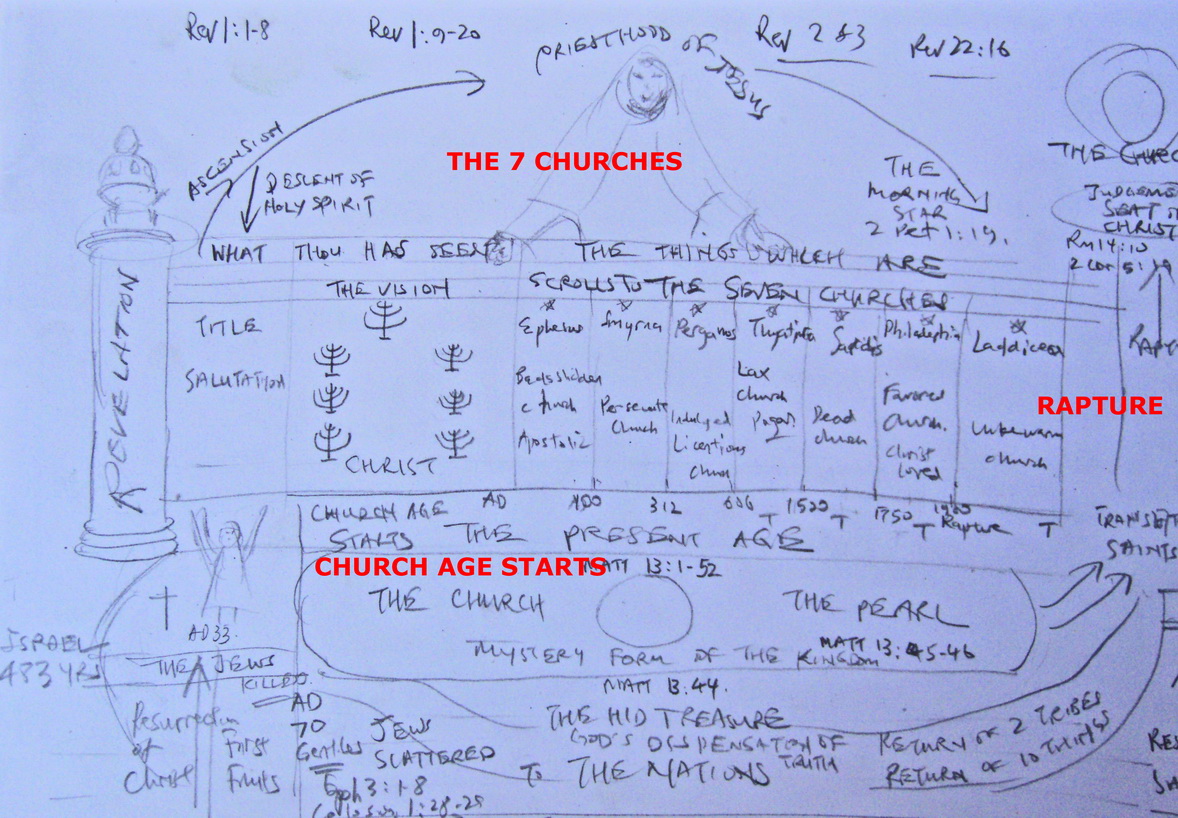 Rev 1:1-8
Rev 1:9-20
PRIESTHOOD OF JESUS
Rev 2 & 3
Rev 22:16
ASCENSION
DESCENT OF
HOLY SPIRIT
THE 7 CHURCHES
THE
MORNING
STAR
2 Pet 1:19.
THE CHURC
JUDGEME
SEAT
CHRIST
Rm 14:10
2 Cor 5:
REVELATION
WHAT THOU HAS SEEN THE THINGS WHICH ARE
THE VISION
SCROLLS TO THE SEVEN CHURCHES
TITLE
SALUTATION
CHRIST
Ephesus
Smyrna
Pergamos
Thyatira
Sardis
Philadelphia
Laodicea
Apostolic
Church
Indulged
Licentious
Church
Lax
Church
Dead
church
Favored
Church.
Christ
loved
Lukewarm
church
RAPTURE
CHURCH AGE
STARTS
AD
100
312
606
T
1500
T
1750
T
1900
Rapture
T
THE PRESENT AGE
CHURCH AGE STARTS
MATT 13:1-52
THE CHURCH
THE PEARL
MATT 13:45-46
MYSTERY FORM OF THE KINGDOM
MATT 13.44.
THE HID TREASURE
GOD'S DISPENSATION OF
TRUTH
TO THE NATIONS
RETURN OF 2 TRIBES
RETURN OF 10 TRIBES
SAINTS
ISRAEL
483 YRS
AD33.
THE JEWS
KILLED
AD
70
JEWS
SCATTERED
Gentiles
Eph 3:1-8
Resurrection
of
Christ
First
Fruits